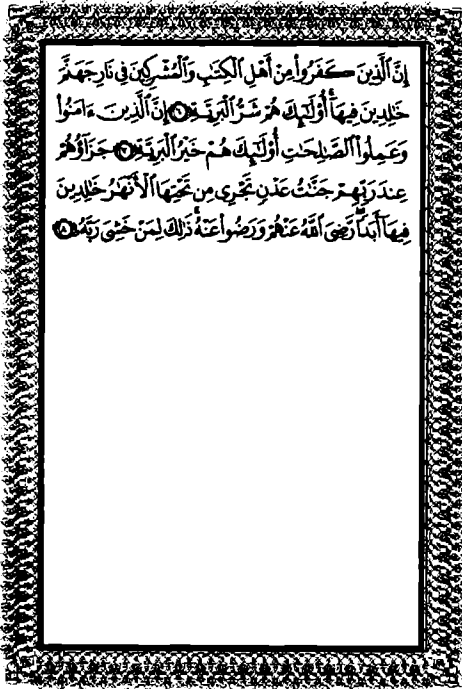 إِنَّ ٱلَّذِينَ كَفَرُوا۟ مِنْ أَهْلِ ٱلْكِتَٰبِ وَٱلْمُشْرِكِينَ فِى نَارِ جَهَنَّمَ
خَٰلِدِينَ فِيهَآ أُو۟لَٰٓئِكَ هُمْ شَرُّ ٱلْبَرِيَّةِ ٦ إِنَّ ٱلَّذِينَ ءَامَنُوا۟
وَعَمِلُوا۟ ٱلصَّٰلِحَٰتِ أُو۟لَٰٓئِكَ هُمْ خَيْرُ ٱلْبَرِيَّةِ ٧ جَزَآؤُهُمْ
عِندَ رَبِّهِمْ جَنَّٰتُ عَدْنٍ تَجْرِى مِن تَحْتِهَا ٱلْأَنْهَٰرُ خَٰلِدِينَ
فِيهَآ أَبَدًا رَّضِىَ ٱللَّهُ عَنْهُمْ وَرَضُوا۟ عَنْهُ ذَٰلِكَ لِمَنْ خَشِىَ رَبَّهُۥ ٨